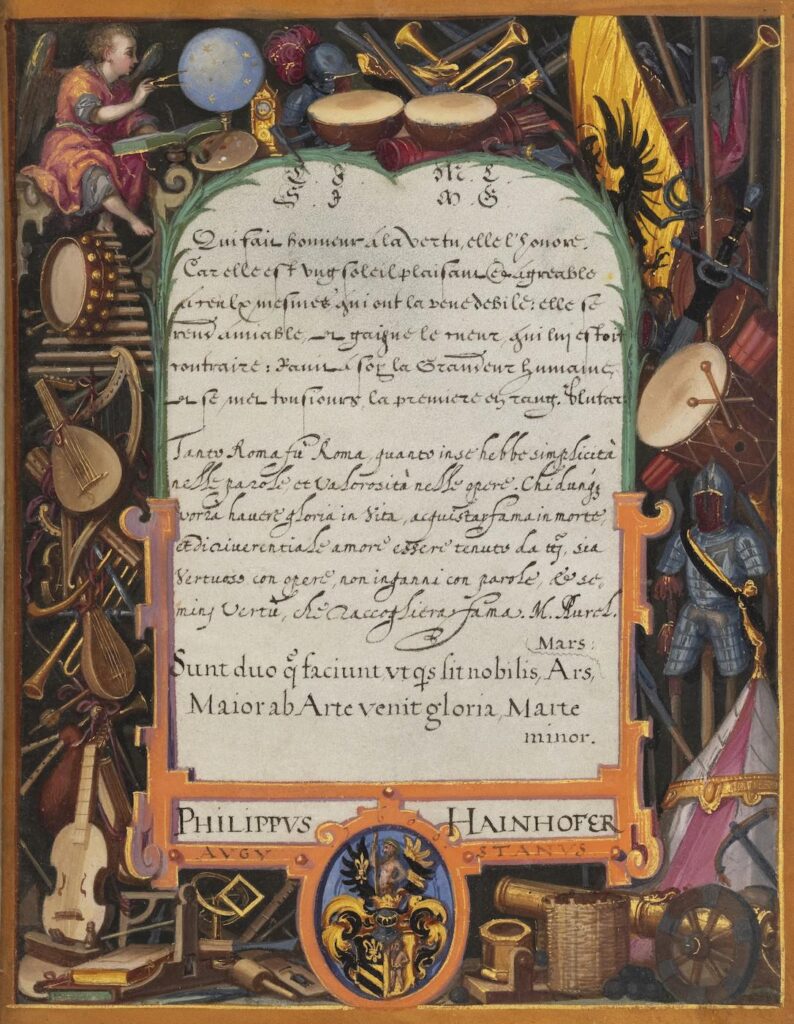 Qui fait honneur à la vertu, elle l'honore.
Car elle est vng soleil plaisant & agreable
à ceulx mesmes qui ont la veue debile: elle se
rend amiable, et gaigne le cueur, qui lui estoit
contraire: Ravit à soy la Grandeur humaine,
et se met tousiours la premiere en rang. Plutar:
Tanto Roma fù Roma, quanto in se hebbe simplicità
nelle parole et Valorosità nelle opere. Chi dunq3
vorrà havere gloria in Vita, acquistar fama in morte,
et di riverentiale amore essere tenuto da ttj, sia
Vertuoso con opere, non inganni con parole, & se-
minj Vertù, che raccogliera fama. M. Aurel.
Mars:
Sunt duo q̃ faciunt vt q̃s sit nobilis, Ars,
Maior ab Arte venit gloria, Marte
minor.
PHILIPPVS HAINHOFER
AVGVSTANVS